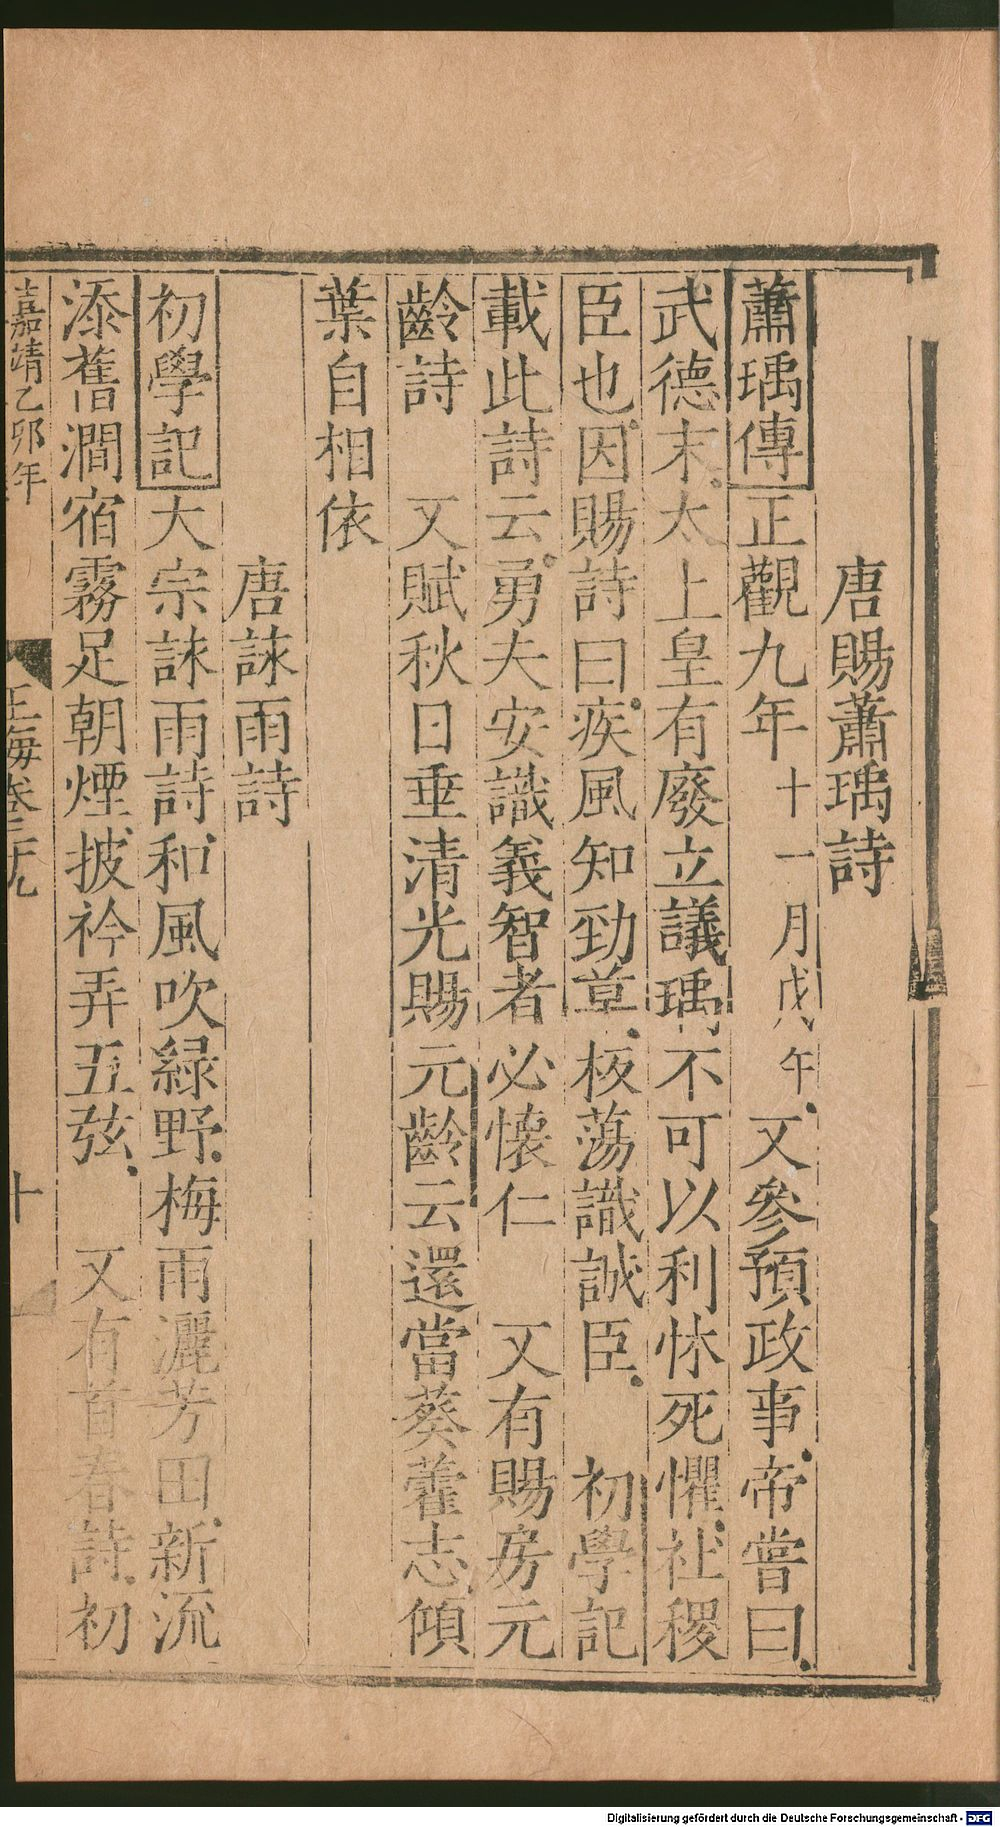 唐賜蕭瑀詩
蕭瑀傳正觀九年十一月戊午又參預政事帝嘗曰
武德末太上皇有廢立議瑀不可以利怵死懼社稷
臣也因賜詩曰疾風知勁草板蕩識誠臣 初學記
載此詩云勇夫安識義智者必懷仁 又有賜房元
齡詩 又賦秋日垂清光賜元齡云還當葵藿志傾
葉自相依
唐詠雨詩
初學記大宗詠雨詩和風吹緑野梅雨灑芳田新流
添舊澗宿霧足朝煙披衿弄五弦 又有首春詩初
嘉靖乙卯年 玉海卷二十九 十
Digitalisierung gefördert durch die Deutsche Forschungsgemeinschaft - DFG